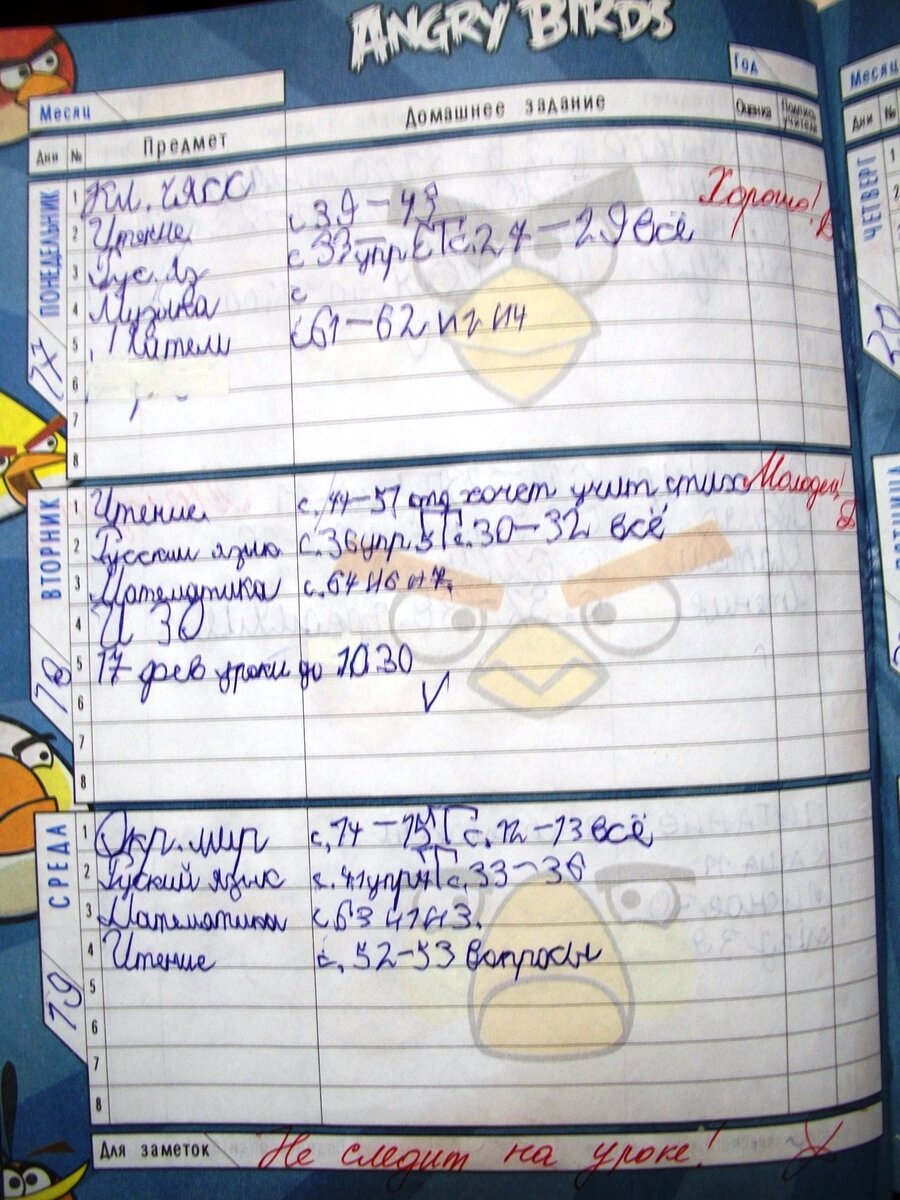 ANGRY BIRDS
Месяц
Год
Месяц
Дни № Предмет Домашнее задание Оценка Подпись учителя
Дни №
ПОНЕДЕЛЬНИК
17
1 Кл. час с
2 Чтение с 39-43 Хорошо!
3 Рус. яз с 33 упр. с. 27-29 всё
4 Музыка с
5 с 61-62
6
7
8
ВТОРНИК
18
1 Чтение с. 44-51 хочет учит стих Молодец!
2 Русский язык с. 36 упр 3 с. 30-32 всё
3 Математика с. 64 №6
4 И ЗО
5 17 фев уроки до 10 30
6
7
8
СРЕДА
19
1 Окр. мир с. 14-15 Т с. 12-13 всё
2 Руский язык с. 41 упр с. 33-36
3 Математика с. 63
4 Чтение с. 52-53 вопросы
5
6
7
8
Для заметок Не следит на уроке!
ЧЕТВЕРГ
20